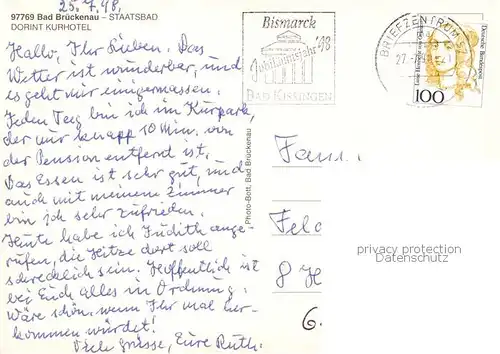 25.7.98,
97769 Bad Brückenau – STAATSBAD
DORINT KURHOTEL
Hallo, Ihr Lieben. Das
Wetter ist wunderbar, und
es geht mir einigermassen.
Jeden Tag bin ich im Kurpark,
der nur knapp 10 Min. von
der Pension entfernt ist.
Das Essen ist sehr gut, und
auch mit meinem Zimmer
bin ich sehr zufrieden.
Heute habe ich Judith ange-
rufen, die Hitze dort soll
schrecklich sein. Hoffentlich ist
bei Euch alles in Ordnung.
Wäre schön, wenn Ihr mal her-
kommen würdet!
Viele Grüsse, Eure Ruth.
Photo-Bott, Bad Brückenau
Bismarck
Jubiläumsjahr '98
BAD KISSINGEN
BRIEFZENTRUM
Deutsche Bundespost
100
Fam.
Feld
8 H
6.
privacy protection
Datenschutz